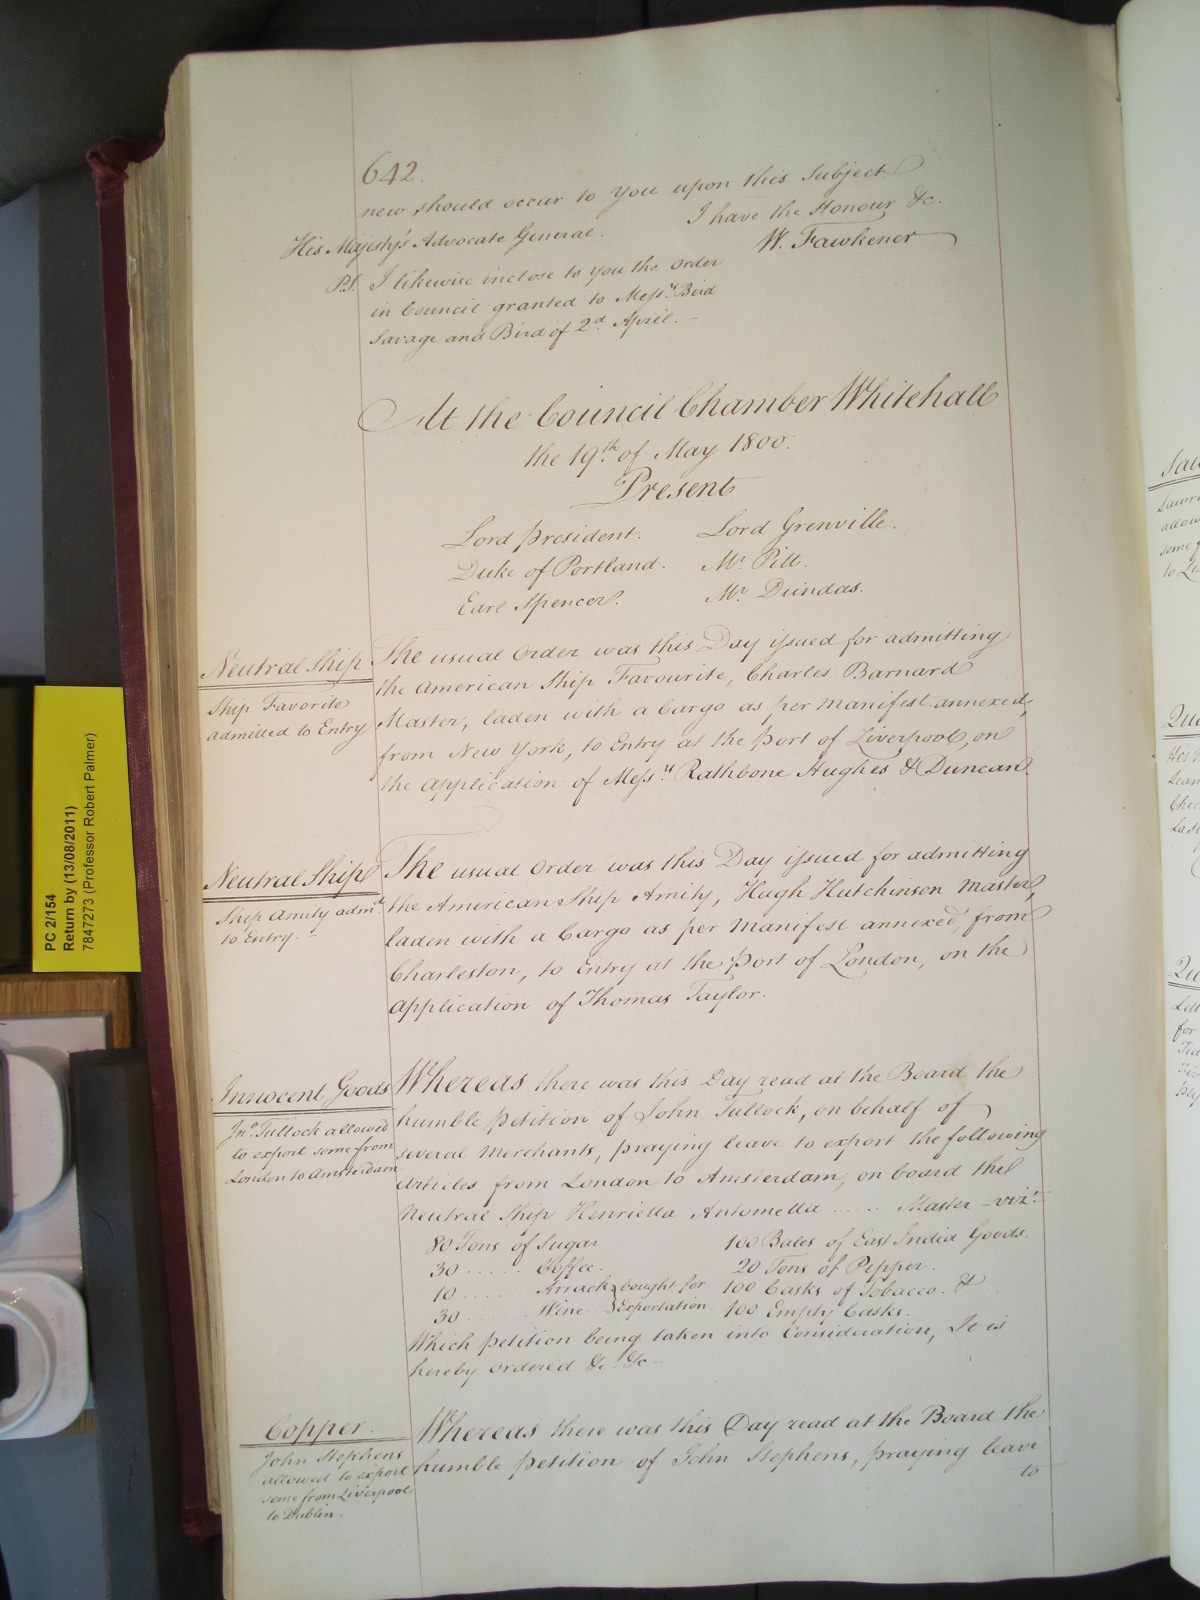 642.
new should occur to you upon this Subject.
I have the Honour &c.
His Majesty's Advocate General.
W. Fawkener
P.S. I likewise inclose to you the Order
in Council granted to Messrs. Bird
Savage and Bird of 2d April. -
At the Council Chamber Whitehall
the 19th of May 1800.
Present
Lord President. Lord Grenville.
Duke of Portland. Mr. Pitt.
Earl Spencer. Mr. Dundas.
Neutral Ship
Ship Favorite
admitted to Entry
The usual Order was this Day issued for admitting
the American Ship Favourite, Charles Barnard
Master, laden with a Cargo as per Manifest annexed,
from New York, to Entry at the Port of Liverpool, on
the application of Messrs Rathbone Hughes & Duncan.
Neutral Ship
Ship Amity admd.
to Entry. -
The usual Order was this Day issued for admitting
the American Ship Amity, Hugh Hutchinson Master,
laden with a Cargo as per Manifest annexed, from
Charleston, to Entry at the Port of London, on the
application of Thomas Taylor.
Innocent Goods
Jno. Tullock allowed
to export some from
London to Amsterdam
Whereas there was this Day read at the Board the
humble Petition of John Tullock, on behalf of
several Merchants, praying leave to export the following
Articles from London to Amsterdam, on board the
Neutral Ship Henrietta Antometta ..... Master - vizt.
80 Tons of Sugar 100 Bales of East India Goods.
30 ...... Coffee. 20 Tons of Pepper.
10 ...... Arrack } bought for 100 Casks of Tobacco. &
30 ...... Wine } Exportation. 100 Empty Casks.
Which Petition being taken into Consideration, It is
hereby Ordered &c. &c -
Copper.
John Stephens
allowed to export
some from Liverpool
to Dublin.
Whereas there was this Day read at the Board the
humble Petition of John Stephens, praying leave
to
PC 2/154
Return by (13/08/2011)
7847273 (Professor Robert Palmer)